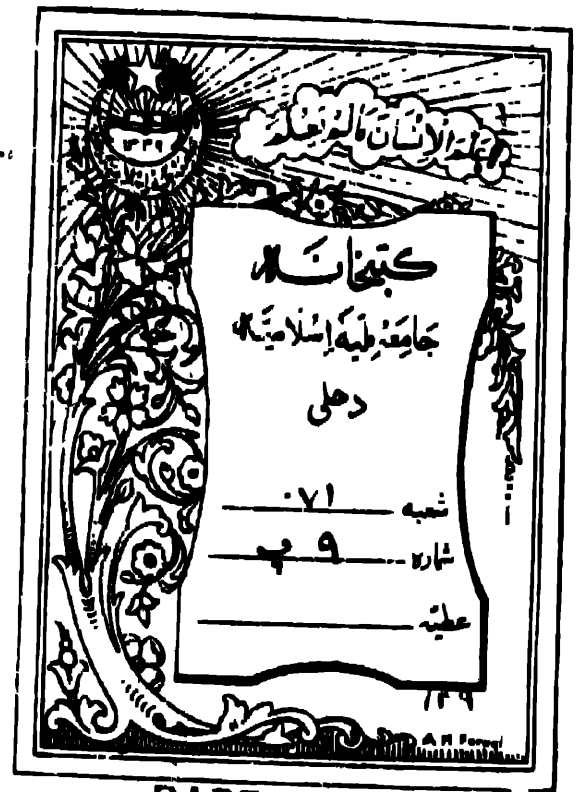 ۱۳۳۹
عَلَّمَ الْاِنْسَانَ مَالَمْ يَعْلَمْ
كتبخانه
جامعہ ملیہ اسلامیہ
دہلی
شعبه ۰۷۱
شماره ۹ پ
عطیّہ
۱۳۹
A M Farooqi
RARE